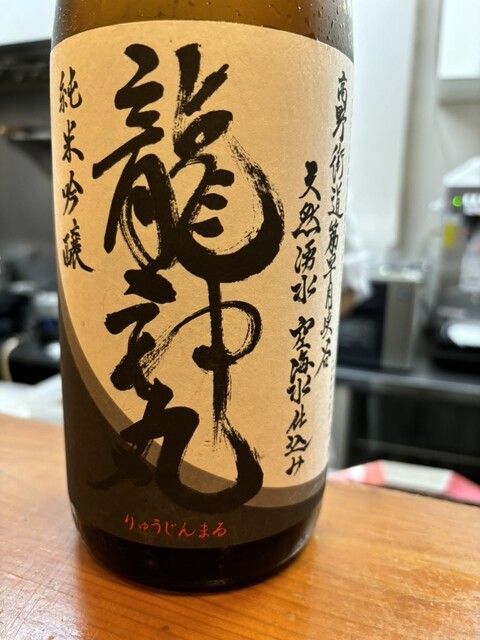 高野街道
天然湧水 空海水仕込み
龍神丸
純米吟醸
りゅうじんまる